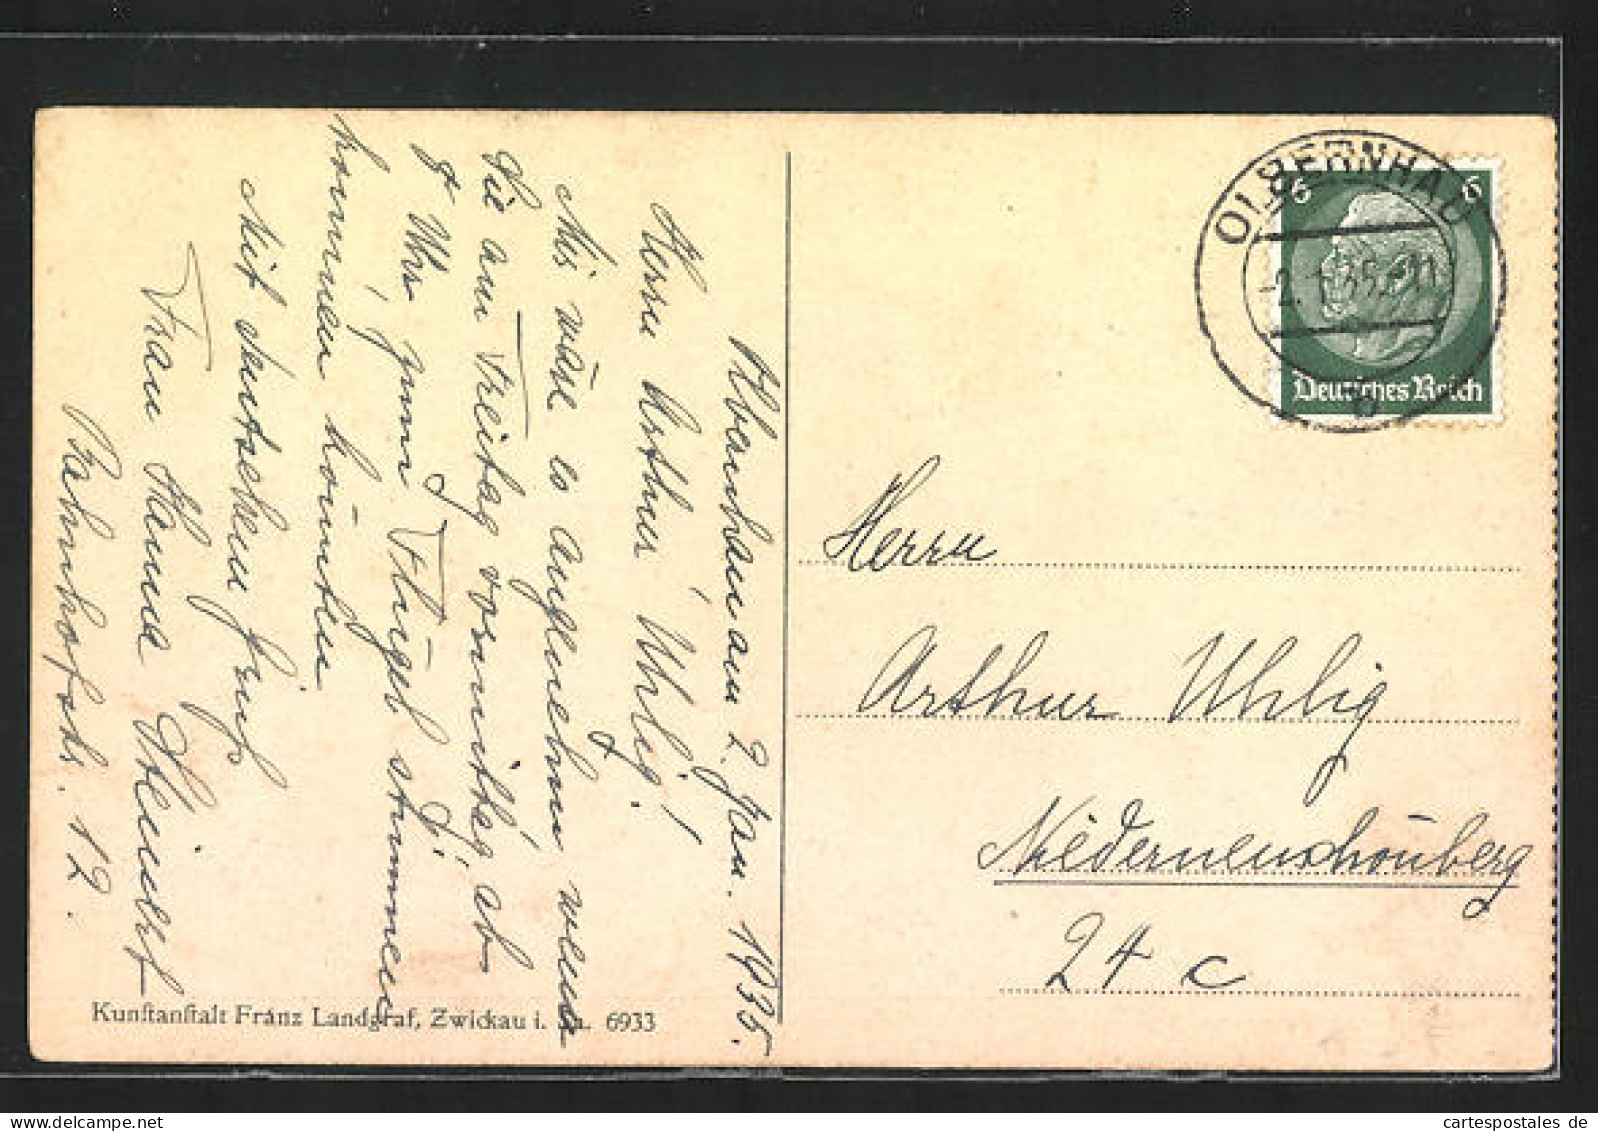 Olbernhau am 2. Jan. 1935.
Herrn Arthur Uhlig!
Mir wäre es angenehm wenn
Sie am Freitag vormittag, ab
8 Uhr, zum Flügel stimmen
kommen könnten
Mit deutschem Gruß
Frau Hanna
Bahnhofstr. 12.
Kunstanstalt Franz Landgraf, Zwickau i. Sa. 6933
OLBERNHAU
-2.1.35.-11
b
6 6
Deutsches Reich
Herrn
Arthur Uhlig
Niederneuschönberg
24 c
cartespostales de